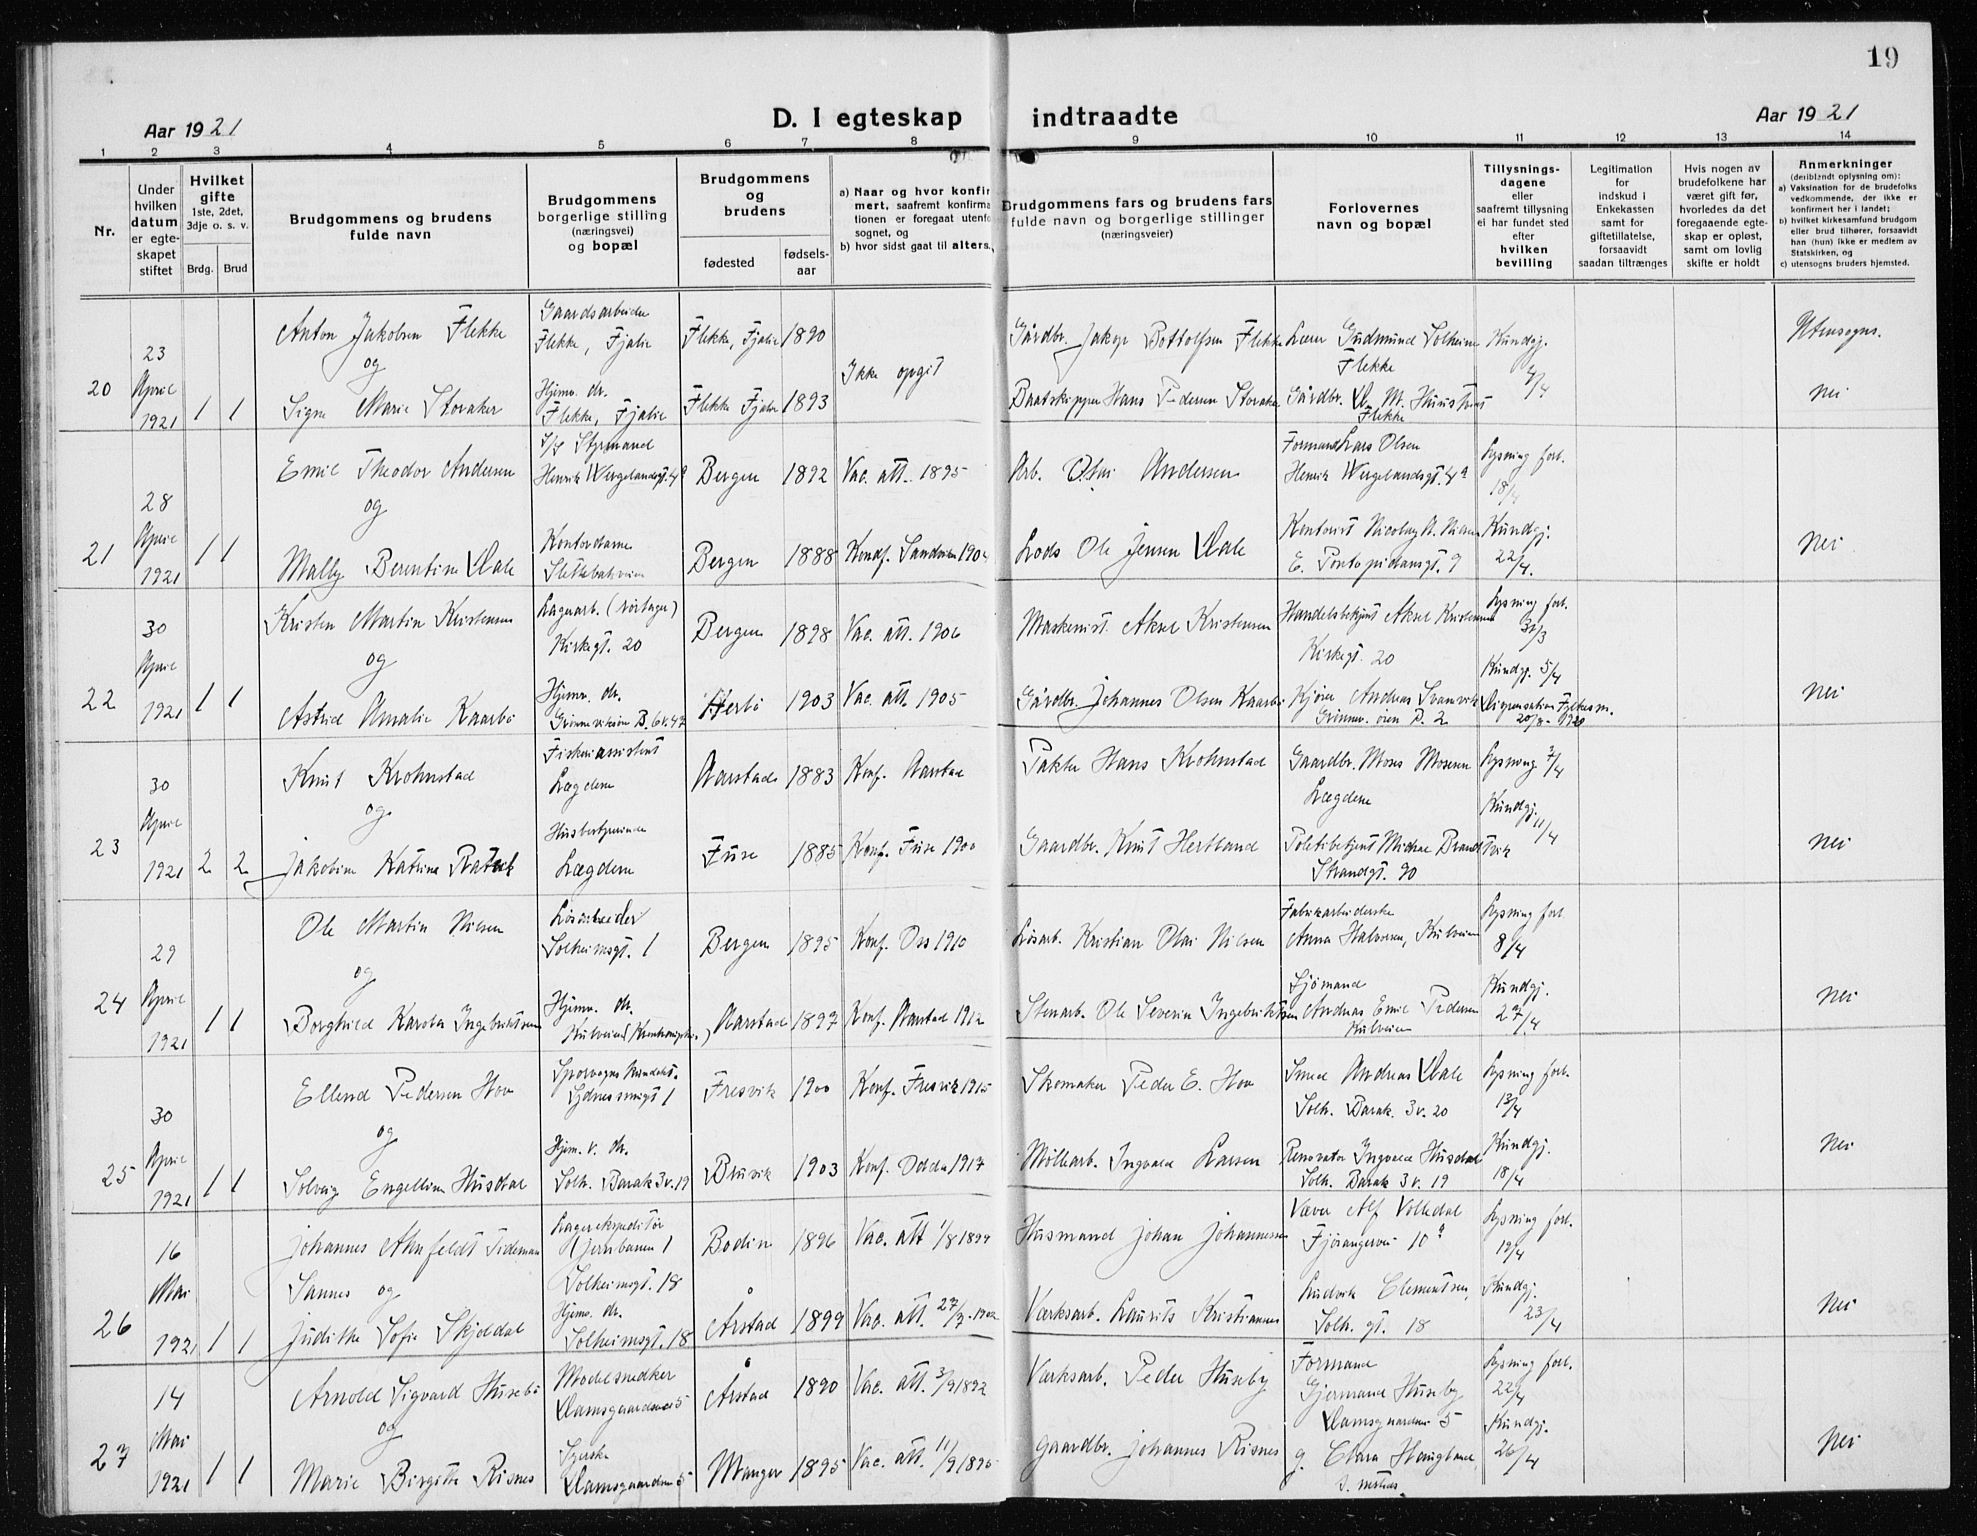 19
Aar 1921
D. I egteskap indtraadte
Aar 1921
1 2 3 4 5 6 7 8 9 10 11 12 13 14
Nr.
Under
hvilken
datum
er egte-
skapet
stiftet
Hvilket
gifte
1ste, 2det,
3dje o. s. v.
Brdg. Brud
Brudgommens og brudens
fulde navn
Brudgommens
borgerlige stilling
(næringsvei)
og bopæl
Brudgommens
og
brudens
fødested
fødsels-
aar
a) Naar og hvor konfir
mert, saafremt konfirma
tionen er foregaat utenfo
sognet, og
b) hvor sidst gaat til alters.
Brudgommens fars og brudens fars
fulde navn og borgerlige stillinger
(næringsveier)
Forlovernes
navn og bopæl
Tillysnings-
dagene
eller
saafremt tillysning
ei har fundet sted
efter
hvilken
bevilling
Legitimation
for
indskud i
Enkekassen
samt for
giftetillatelse,
forsaavidt
saadan tiltrænges
Hvis nogen av
brudefolkene har
været gift før,
hvorledes da det
foregaaende egte-
skap er opløst,
samt om lovlig
skifte er holdt
Anmerkninger
(deriblandt oplysning om):
a) Vaksination for de brudefolks
vedkommende, der ikke er
konfirmert her i landet;
b) hvilket kirkesamfund brudgom
eller brud tilhører, forsaavidt
han (hun) ikke er medlem av
Statskirken, og
c) utensogns bruders hjemsted.
20
23
April
1921
1 1
Anton Jakobsen Flekke
og
Signe Marie Storaker
Gaardsarbeider
Flekke, Fjalir
Hjemv. dr.
Flekke, Fjalir
Flekke, Fjalir 1890
Flekke Fjaler 1893
Ikke opgit
Gårdbr. Jakop Bottolfsen Flekke
Baatskipper Hans Pedersen Storaker
Lærer Gudmund Solheim
Flekke
Gårdbr. D. M. Hustoft
Flekke
Kundgj.
4/4
Utensogns.
Nei
21
28
April
1921
1 1
Emil Theodor Andersen
og
Mally Berentine Dale
S/S Styrmand
Henrik Wergelandsgt. 4a
Kontordame
Slettebakveien
Bergen 1892
Bergen 1888
Vac. att. 1895
Konf. Sandviken 190
Arb. Olai Andersen
Lods Ole Jensen Dale
Formand Lars Olsen
Henrik Wergelandsgt. 4a
Kontorist Nicolay A. Nielsen
E. Pontopidansgt. 9
Lysning forl.
18/4
Kundgj.
22/4.
Nei
22
30
April
1921
1 1
Kristen Martin Kristensen
og
Astrid Amalie Kaarbø
Lagerarb. (rørlager)
Kirkegt. 20
Hjemv. dr.
Grønneviksøren B. 6 v. 42
Bergen 1898
Herbø 1903
Vac. att. 1906
Vac. att. 1905
Maskinist. Aksel Kristensen
Gårdbr. Johannes Olsen Kaarbø
Handelsbetjent Aksel Kristensen
Kirkegt. 20
Kjører Andreas Svanvik
Grønnev. ören B. 2
Lysning forl.
31/3
Kundgj. 5/4
Dispensation Fylkesm.
1920
Nei
23
30
April
1921
2 2
Knut Krohnstad
og
Jakobine Katrine Ratvik
Fiskeriassistent
Lægdene
Husbestyrerinde
Lægdene
Aarstad 1883
Fuse 1885
Konf. Aarstad
Konf. Fuse 1900
Pakker Hans Krohnstad
Gaardbr. Knut Hertland
Gaardbr. Mons Monsen
Lægdene
Politibetjent Mickal Brandtvik
Strandgt. 90
Lysning 7/4
Kundgj.
11/4
Nei
24
29
April
1921
1 1
Ole Martin Nilsen
og
Borghild Karoline Ingebriktsen
Løsarbeider
Solheimsgt. 1
Hjemv. dr.
Bergen 1895
Aarstad 1897
Konf. Oss 1910
Konf. Aarstad 1912
Løsarb. Kristian Olai Nilsen
Stenarb. Ole Severin Ingebriktsen
Fabrikarbeiderske
Anna Halvorsen,
Sjömand
Andreas Emil Pedersen
Lysning forl
8/4
Kundgj.
27/4
Nei
25
30
April
1921
1 1
Ellend Pedersen Hov
og
Solveig Engelline Husdal
Sporvogns kondukt.
Sydnessmugt 1
Hjem. v. dr.
Solh. Barak 3 v. 19
Fresvik 1900
Bruvik 1903
Konf. Fresvik 1915
Konf. Odda 1917
Skomaker Peder E. Hov
Møllearb. Ingvald Larsen
Smed Andreas Dale
Solh. Barak. 3 v. 20
Renovatör Ingvald Husdal
Solh. Barak 3 v. 19
Lysning forl.
13/4
Kundgj.
18/4
Nei
26
16
Mai
1921
1 1
Johannes Ahnfeldt Tideman
Sannes og
Judithe Sofie Skjoldal
Lagerekspeditør
(Jernbanen)
Solheimsgt. 18
Hjemv. dr.
Solheimsgt. 18
Bodin 1896
Årstad 1899
Vac. att 1/8 1899
Vac. att. 27/7. 1902
Husmand Johan Johannessen
Værksarb. Laurits Kristiansen
Væver Alf Volledal
Fjösangervei 10a
Ludvik Clementsen,
Solh. gt. 18
Lysning forl.
19/4
Kundgj.
23/4
Nei
27
14
Mai
1921
1 1
Arnold Sigvard Husebø
og
Marie Birgitte Risnes
Modelsnedker
Damsgaardsvei 5
Syerske
Damsgaardsvei 5
Årstad 1890
Manger 1895
Vac. att. 3/9 1892
Vac. att. 11/9 1895
Værksarb. Peder Huseby
Gaardbr. Johannes Risnes
Formand
Gjermund Huseby
Damsgaardsvei 5
g. Clara Haugland,
s. metsteds.
Lysning forl.
22/4
Kundgj.
26/4
Nei